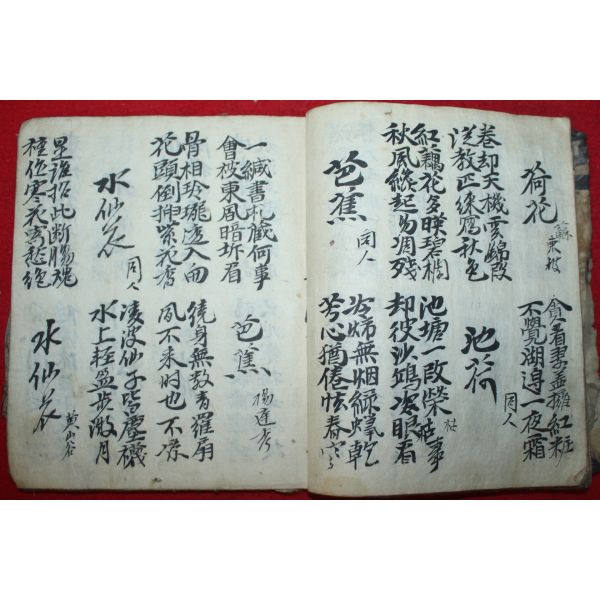 荷花 蘇東坡
貪看翠蓋擁紅粧
不覺湖邊一夜霜
卷却天機雲錦段
從教匹練寫秋色
池荷 同人
紅藕花多映碧欄
秋風纔起易凋殘
池塘一段榮枯事
却被沙鷗冷眼看
芭蕉 同人
冷燭無烟綠蠟乾
芳心猶倦怯春寒
一緘書札藏何事
會被東風暗坼看
芭蕉 楊廷秀
骨相玲瓏透入向
花頭倒抻紫荷香
繞身無數青羅扇
風不來時也不凉
水仙花 同人
凌波仙子皆塵襪
水上輕盈步微月
是誰招此斷腸魂
種作寒花寄愁絶
水仙花 黃山谷